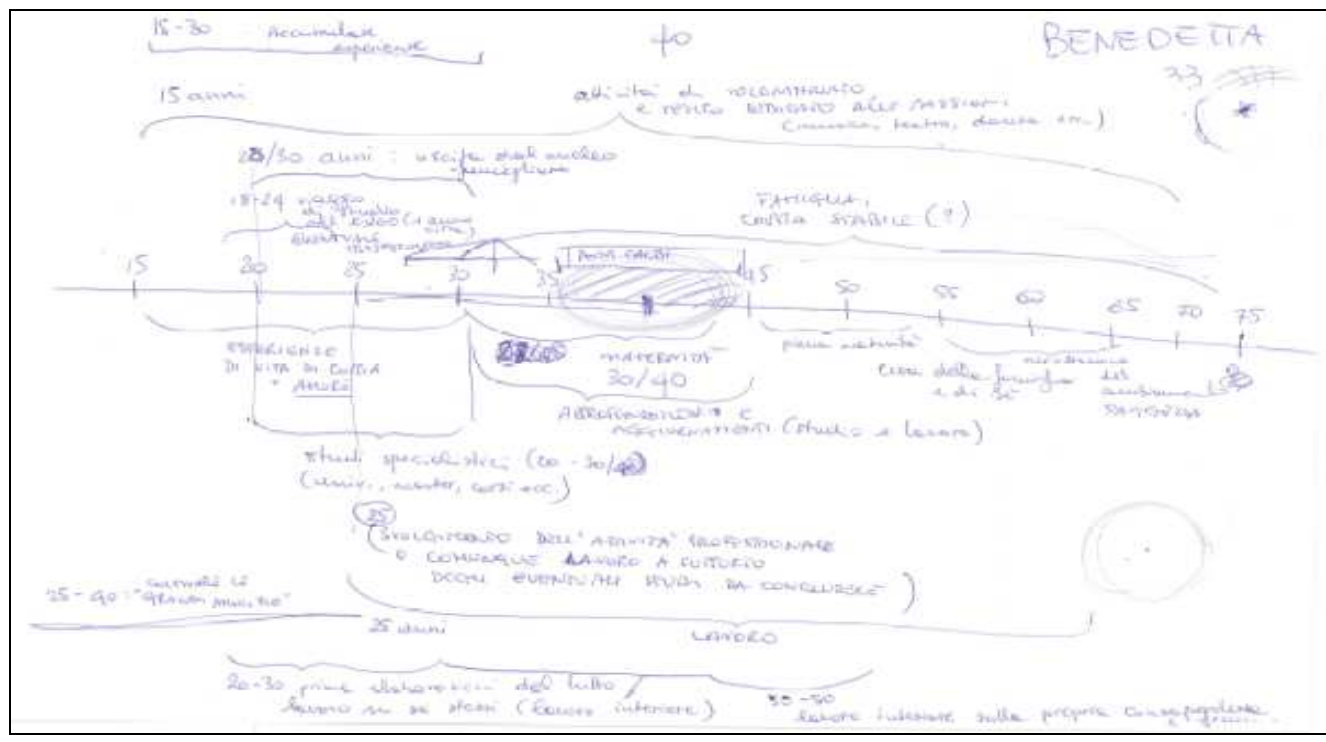 15-30 Accumulare
esperienze
40
BENEDETTA
33
15 anni
attività di VOLONTARIATO
e TEMPO DEDICATO ALLE PASSIONI
(musica, teatro, danza ecc.)
28/30 anni: uscita dal nucleo
famigliare
18-24 viaggio
di studio
FAMIGLIA,
COPPIA STABILE (?)
15 20 25 30 35 45 50 55 60 65 70 75
ESPERIENZE
DI VITA DI COPPIA
AMORE
MATERNITÀ
30/40
piena maturità
Cura della famiglia
e di sé
del
APPROFONDIMENTI E
AGGIORNAMENTI (studio e lavoro)
studi specialistici (20-30/40)
(univ., master, corsi ecc.)
25
(SVOLGIMENTO DELL'ATTIVITÀ PROFESSIONALE
O COMUNQUE LAVORO A
DEGLI EVENTUALI STUDI DA CONCLUDERE)
25-40: "GRANDI AMICIZIE"
25 anni
LAVORO
20-30 prime elaborazioni del tutto
lavoro su se stessi (lavoro interiore)
30-50
lavoro interiore sulla propria consapevolezza